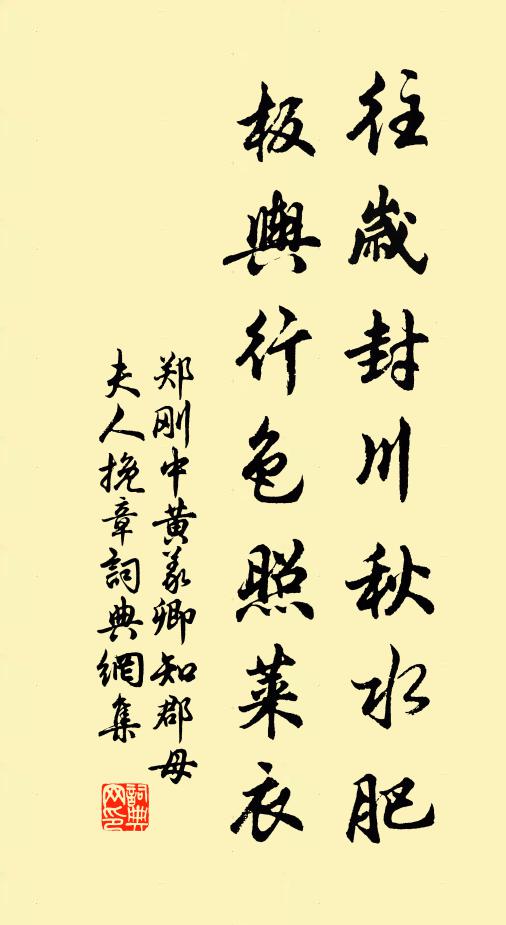 往歲封川秋水肥
板輿行色照菜衣
郑刚中黄義卿知郡母
夫人挽章詞典網集
詞典网印